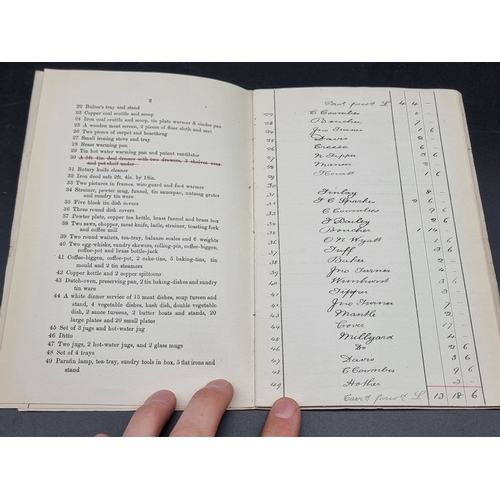 2
22 Butler's tray and stand
23 Copper coal scuttle and scoop
24 Iron coal scuttle and scoop, tin plate warmer & cinder pan
25 A wooden meat screen, 2 pieces of floor cloth and mat
26 Two pieces of carpet and hearthrug
27 Small ironing stove and stand
28 Brass warming pan
29 Tin hot water warming pan and patent ventilator
30 A 5ft. 6in. deal dresser with ten drawers, 3 shelves
and pot shelf under
31 Rotary knife cleaner
32 Iron deed safe 2ft. 4in. by 18in.
33 Two pictures in frames, wire guard and foot warmer
34 Strainer, pewter mug, funnel, tin saucepan, nutmeg grater
and sundry tin ware
35 Five block tin dish covers
36 Three round dish covers
37 Pewter plate, copper tea kettle, brass funnel and brass box
38 Two saws, chopper, meat knife, ladle, strainer, toasting fork
and coffee mill
39 Two round waiters, tea-tray, balance scales and 6 weights
40 Two egg-whisks, sundry skewers, rolling-pin, coffee-biggen,
coffee-pot and brass bottle-jack
41 Coffee-biggen, coffee-pot, 2 cake-tins, 5 baking-tins, tin
mould and 2 tin steamers
42 Copper kettle and 2 copper spittoons
43 Dutch-oven, preserving pan, 2 tin baking-dishes and sundry
tin ware
44 A white dinner service of 15 meat dishes, soup tureen and
stand, 4 vegetable dishes, salad dish, double vegetable
dishes, 2 sauce tureens, 2 butter boats and stands, 20
large plates and 20 small plates
45 Set of 3 jugs and hot-water jug
46 Ditto
47 Two jugs, 2 hot-water jugs, and 2 glass mugs
48 Set of 4 trays
49 Parafin lamp, tea-tray, sundry tools in box, 5 flat irons and
stand
forwd £ 4 4 -
C Coombes
Boucher
Jno Turner 1 6
Davis
Creese 6
N Tipper 3
Mason
Hewitt 1 6
Finlay 8 -
F C Sparks 2 6 -
C Coombes 9 6
J Bailey 2 6
Boucher 1 14 -
Wyatt 1 6
Tuff 3 6
Baker 2 -
Jno Turner 4 -
3 6
Tipper 3 -
Jno Turner 7 -
Mantle 2 -
Coves 17 -
Millyard 4 -
Do 2 6
Davis 3 6
C Coombes 9 6
49 Hother 3 -
Carrd forwd £ 13 18 6